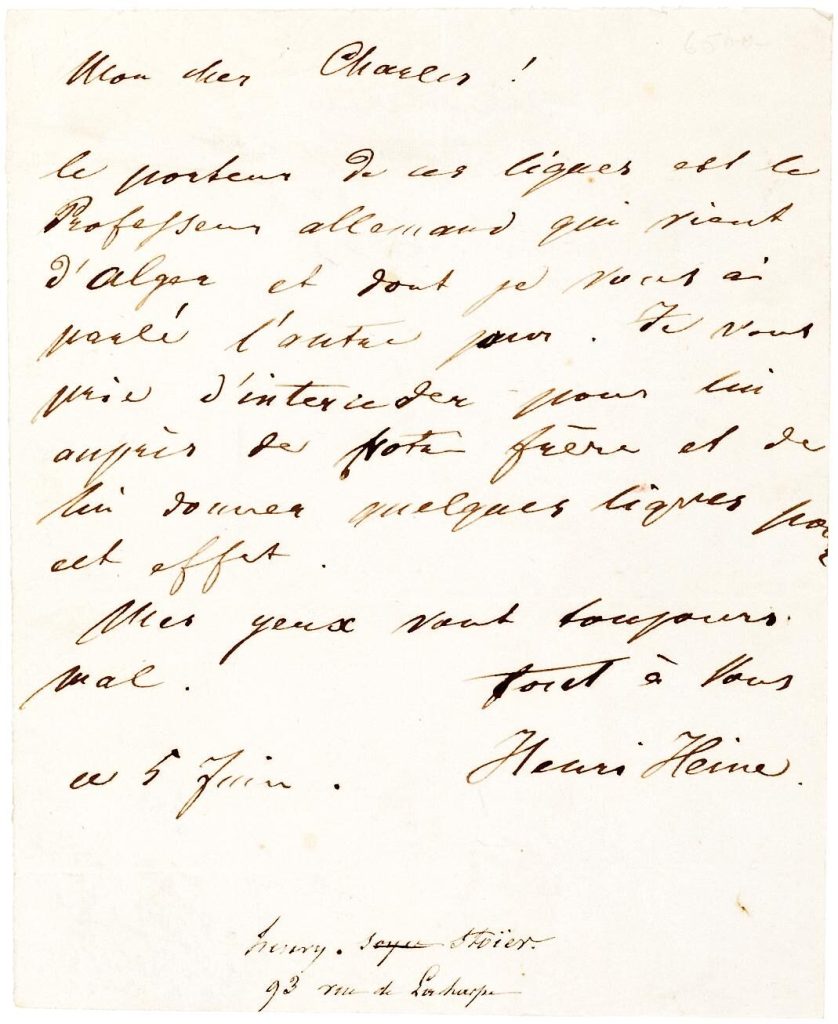 Mon cher Charles !
le porteur de ces lignes est le
Professeur allemand qui vient
d'Alger et dont je vous ai
parlé l'autre jour. Je vous
prie d'interceder pour lui
auprès de Votre frère et de
lui donner quelques lignes pour
cet effet.
Mes yeux vont toujours
mal. tout à Vous
ce 5 Juin. Henri Heine.
henry. Stoïer.
93 rue de Laharpe